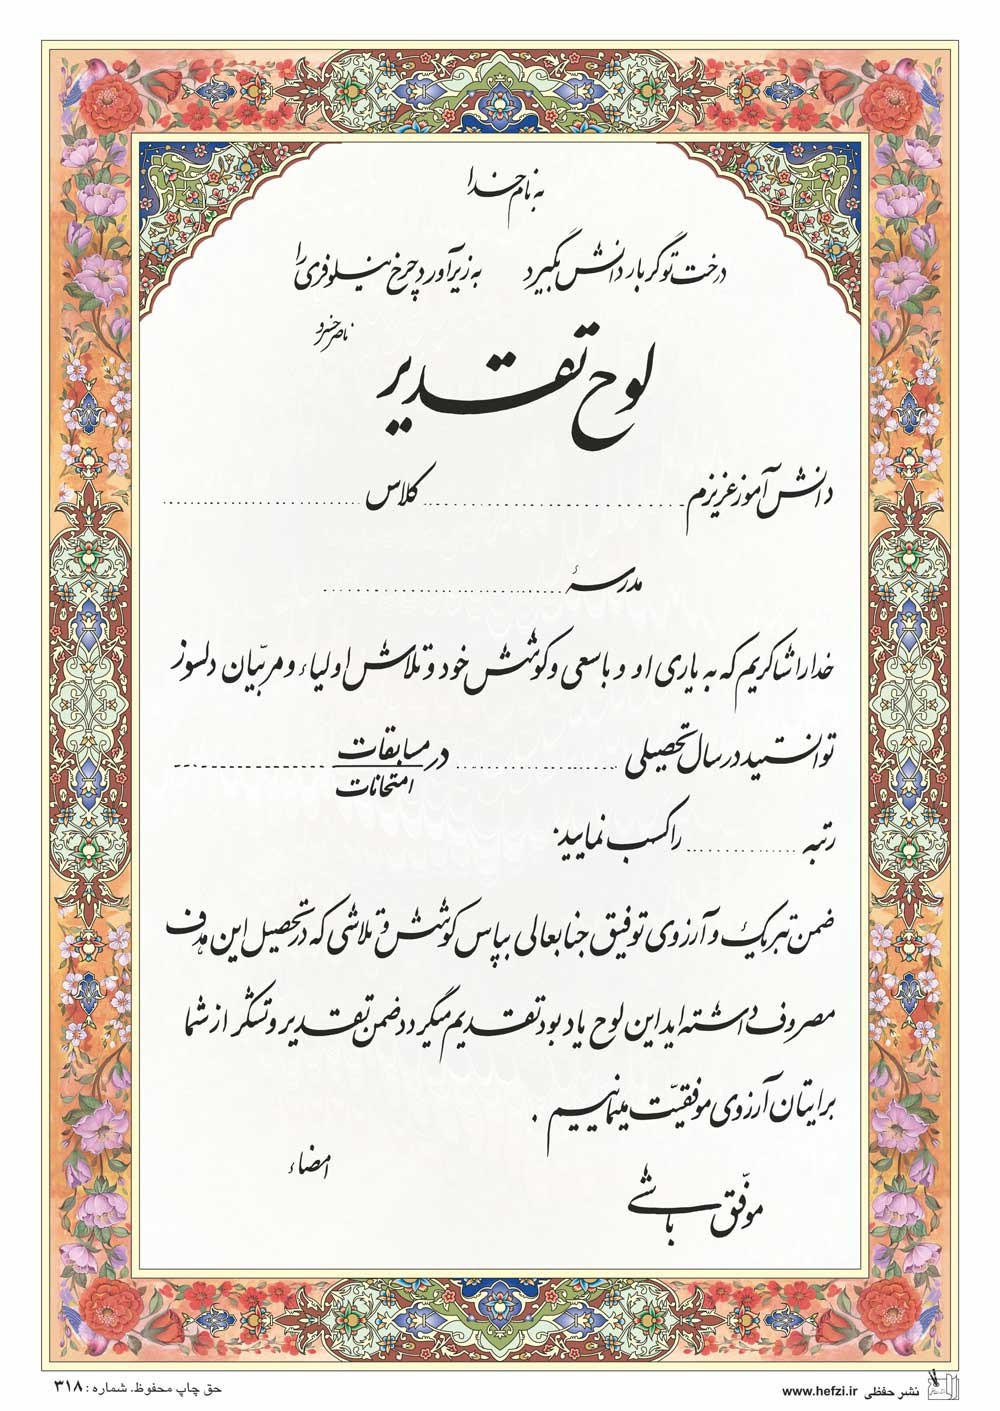 به نام خدا
درخت تو گر بار دانش بگیرد به زیر آورد چرخ نیلوفری را
ناصر خسرو
لوح تقدیر
دانش آموز عزیزم .......................... کلاس ....................
مدرسهٔ ..........................
خدا را شاکریم که به یاری او و با سعی و کوشش خود و تلاش اولیاء و مربّیان دلسوز
توانستید در سال تحصیلی .................. در مسابقات ..................
امتحانات
رتبه ............ را کسب نمایید.
ضمن تبریک و آرزوی توفیق جنابعالی بپاس کوشش و تلاشی که در تحصیل این هدف
مصروف داشته اید این لوح یادبود تقدیم میگردد ضمن تقدیر و تشکر از شما
برایتان آرزوی موفقیّت مینماییم .
امضاء
موفّق باشی
نشر حفظی www.hefzi.ir
حق چاپ محفوظ. شماره: ۳۱۸